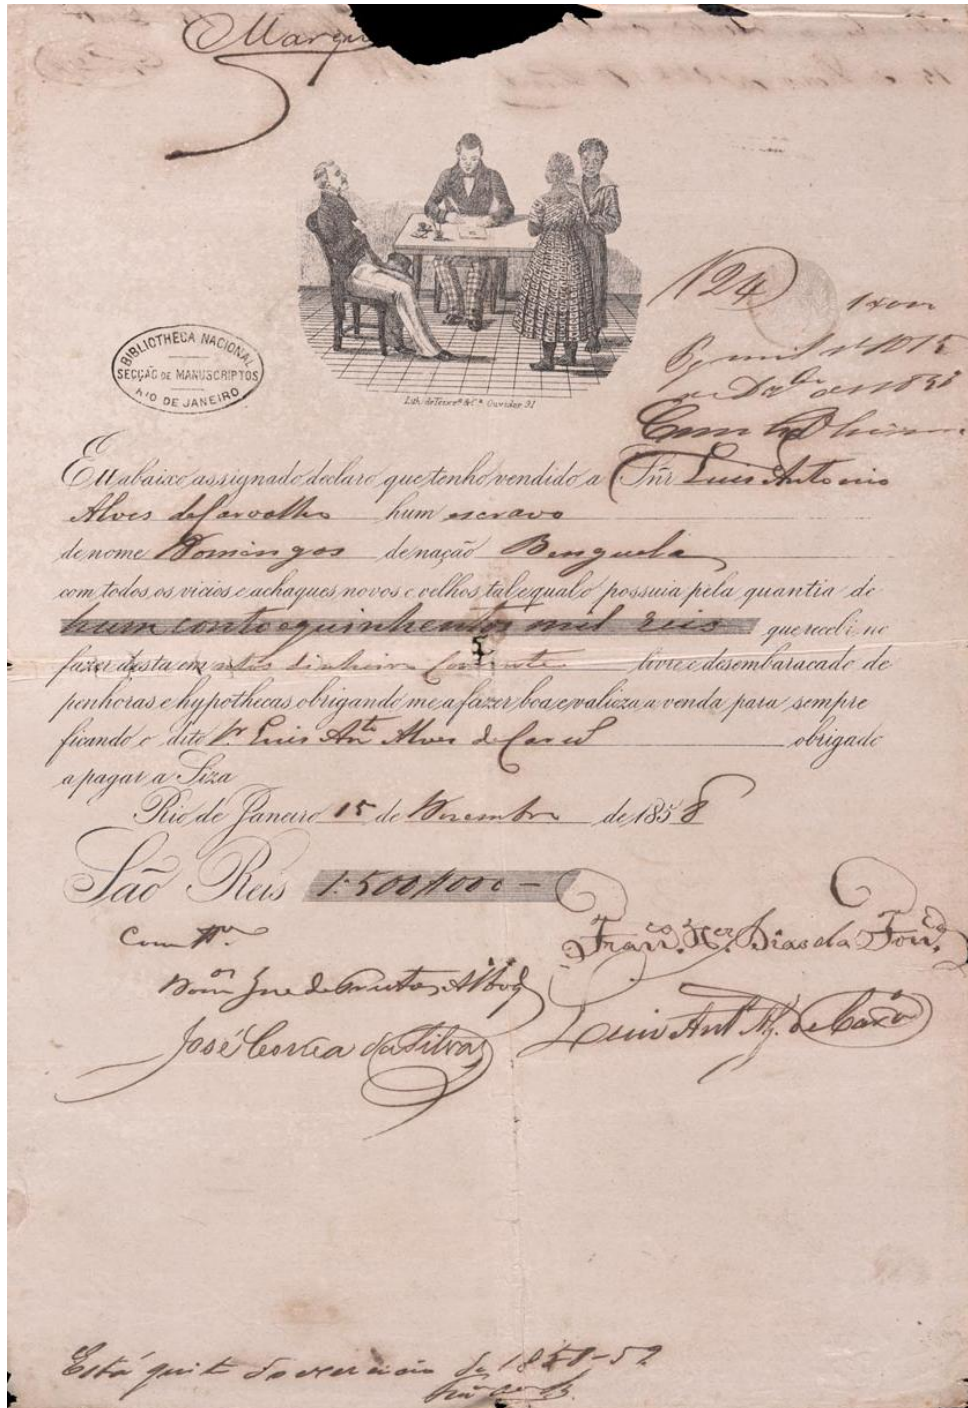 Marqu
BIBLIOTHECA NACIONAL
SECÇÃO DE MANUSCRIPTOS
RIO DE JANEIRO
Lith. de Teixrª. & Cª. Ouvidor 91
N 24
Eu abaixo assignado declaro que tenho vendido a Snr Luis Antonio
Alves de Carvalho hum escravo
de nome Domingos de nação Benguela
com todos os vicios e achaques novos e velhos tal e qual o possuia pela quantia de
hum conto e quinhentos mil reis que recebi no
fazer desta em dinheiro Corrente livre e desembaraçado de
penhoras e hypothecas obrigando me a fazer boa e valioza a venda para sempre
ficando o dito Sr Luis Antº Alves de obrigado
a pagar a Siza
Rio de Janeiro 15 de Novembro de 1858
São Reis 1:500$000 -
Franco. Xer. Dias da Fonca.
José Correa da Silva
Luis Antº Alz. de Carvº
Está quite do exercicio de 1858-59